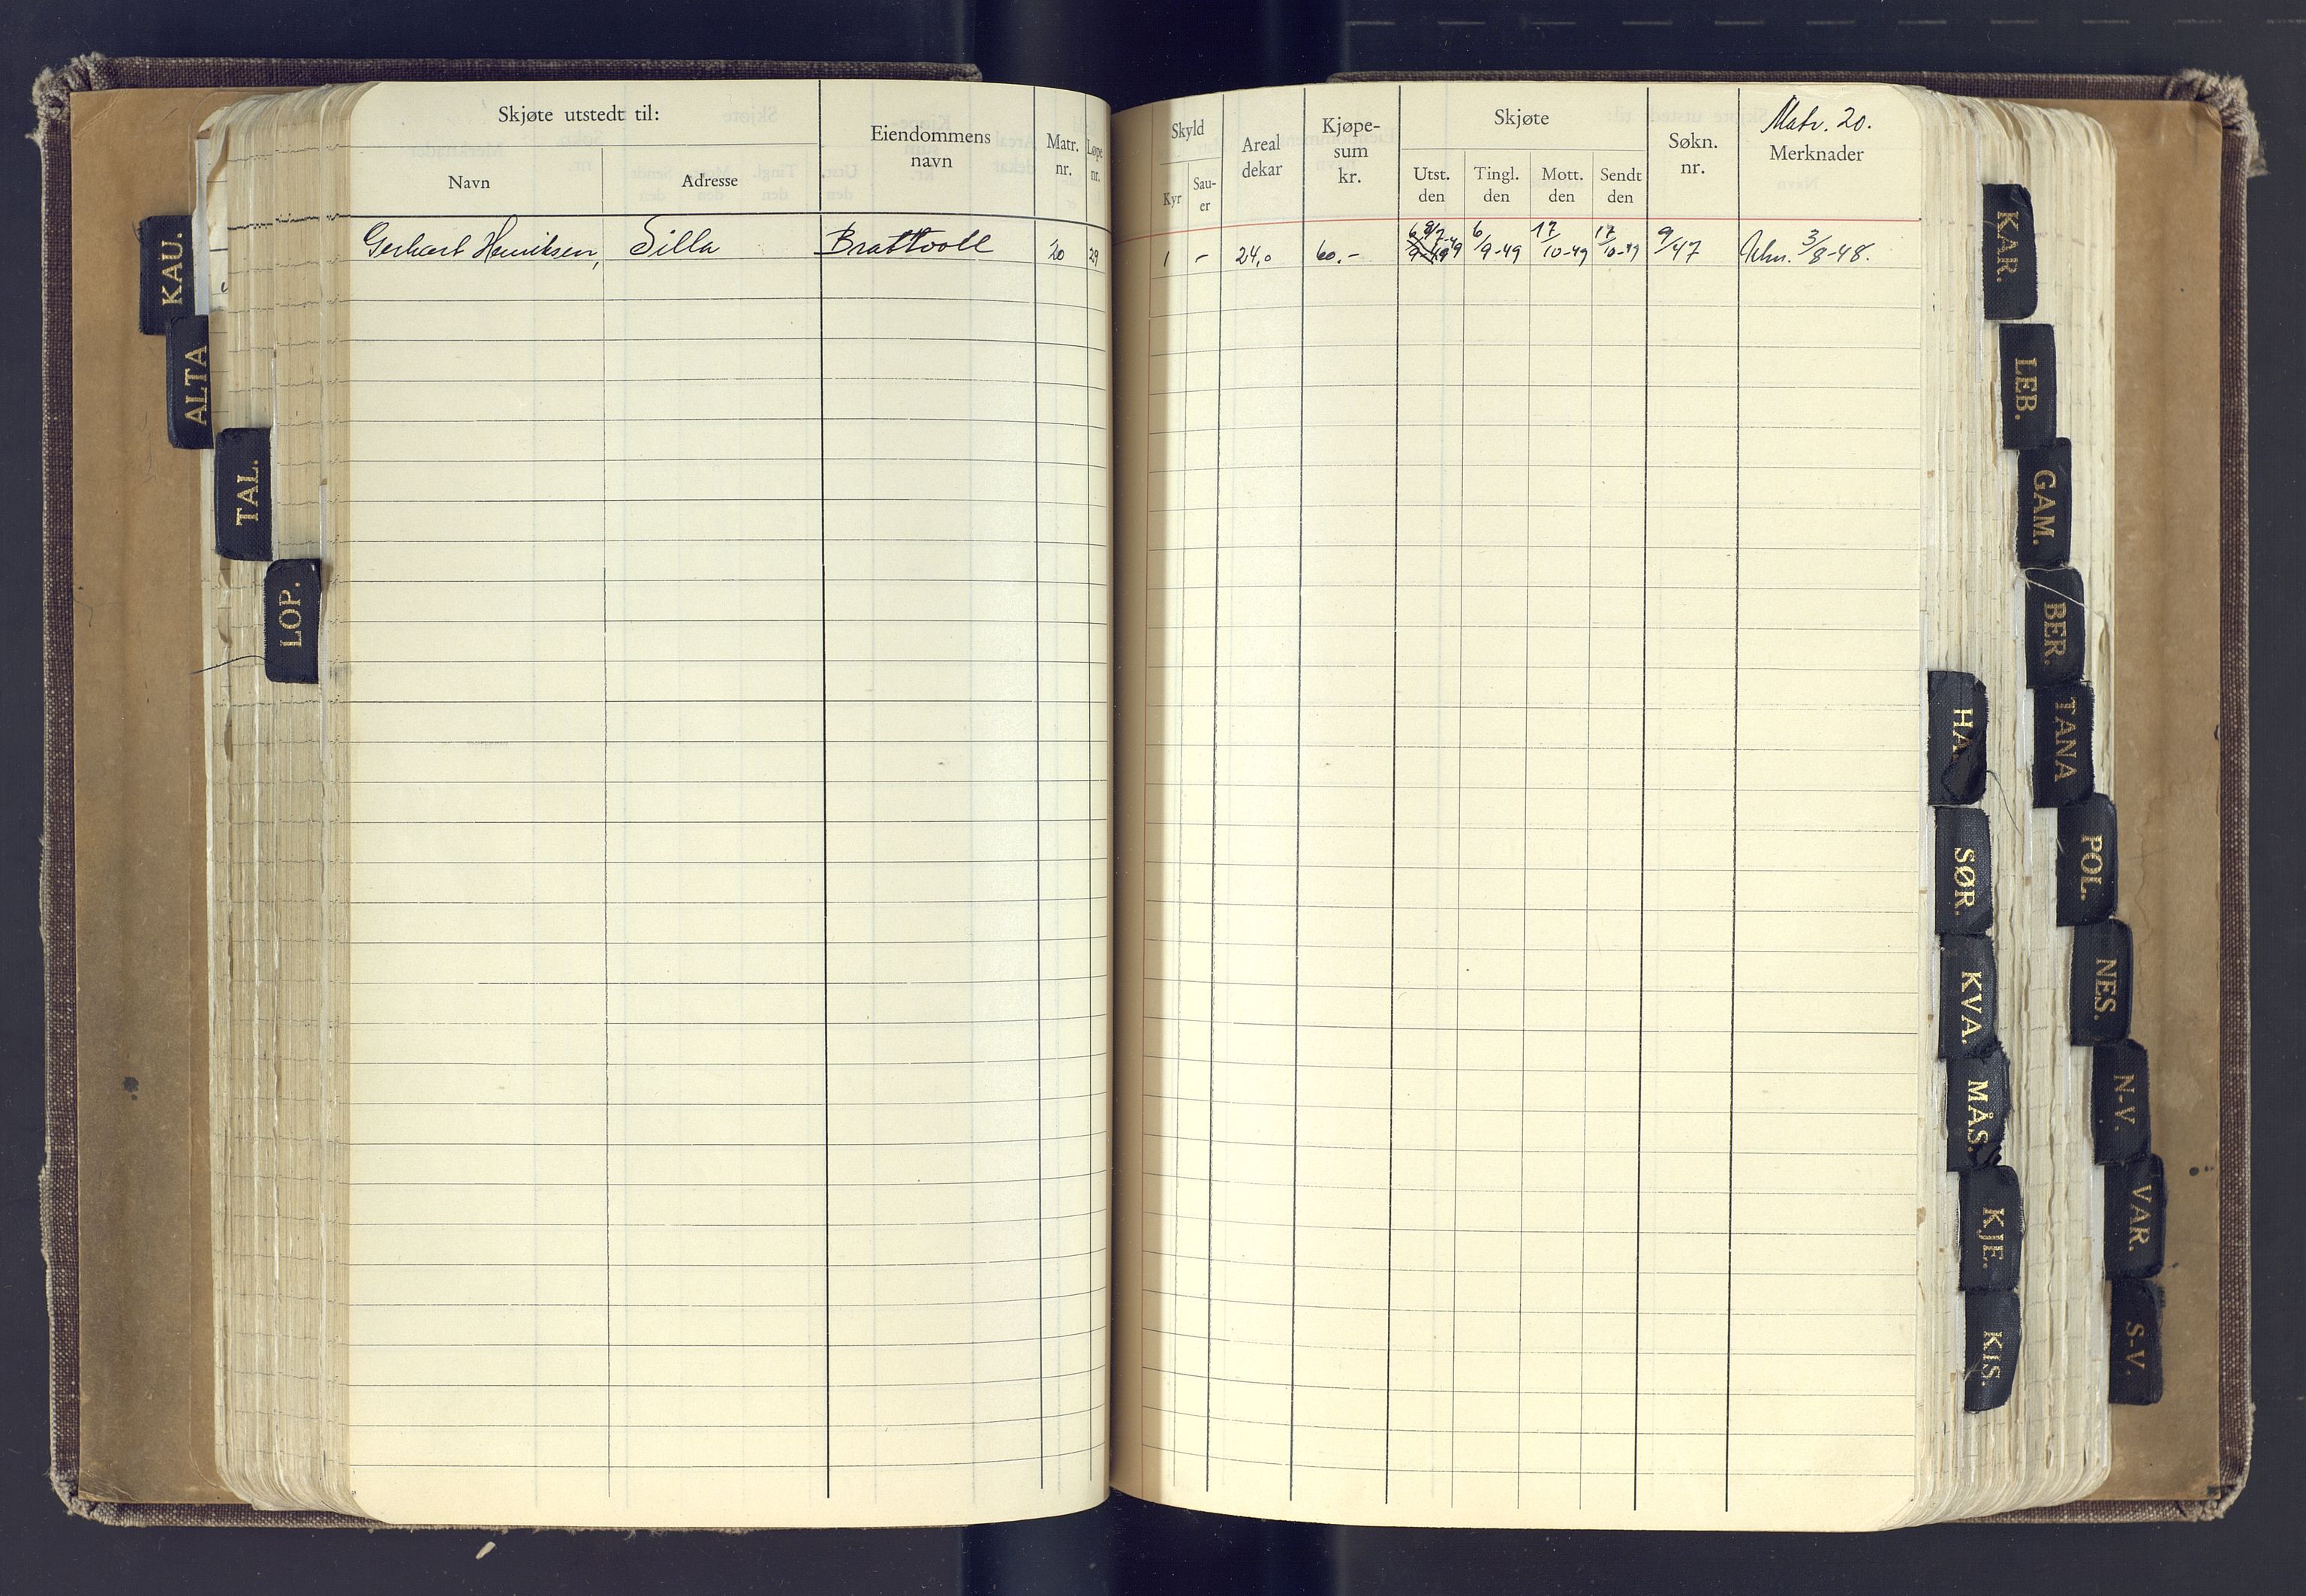 Skjøte utstedt til:
Navn
Adresse
Eiendommens
navn
Matr.
nr.
Løpe
nr.
Gerhart Henriksen,
Silla
Brattvoll
20
29
Matr. 20.
Skyld
Kyr
Sau-
er
Areal
dekar
Kjøpe-
sum
kr.
Skjøte
Utst.
den
Tingl.
den
Mott.
den
Sendt
den
Søkn.
nr.
Merknader
1
-
24,0
60.-
6/9-49
17/10-49
17/10-49
9/47
3/8-48.
KAU.
ALTA
TAL.
LOP.
HA
SØR.
KVA.
MÅS.
KJE.
KIS.
KAR.
LEB.
GAM.
BER.
TANA
POL.
NES.
N-V.
VAR.
S-V.